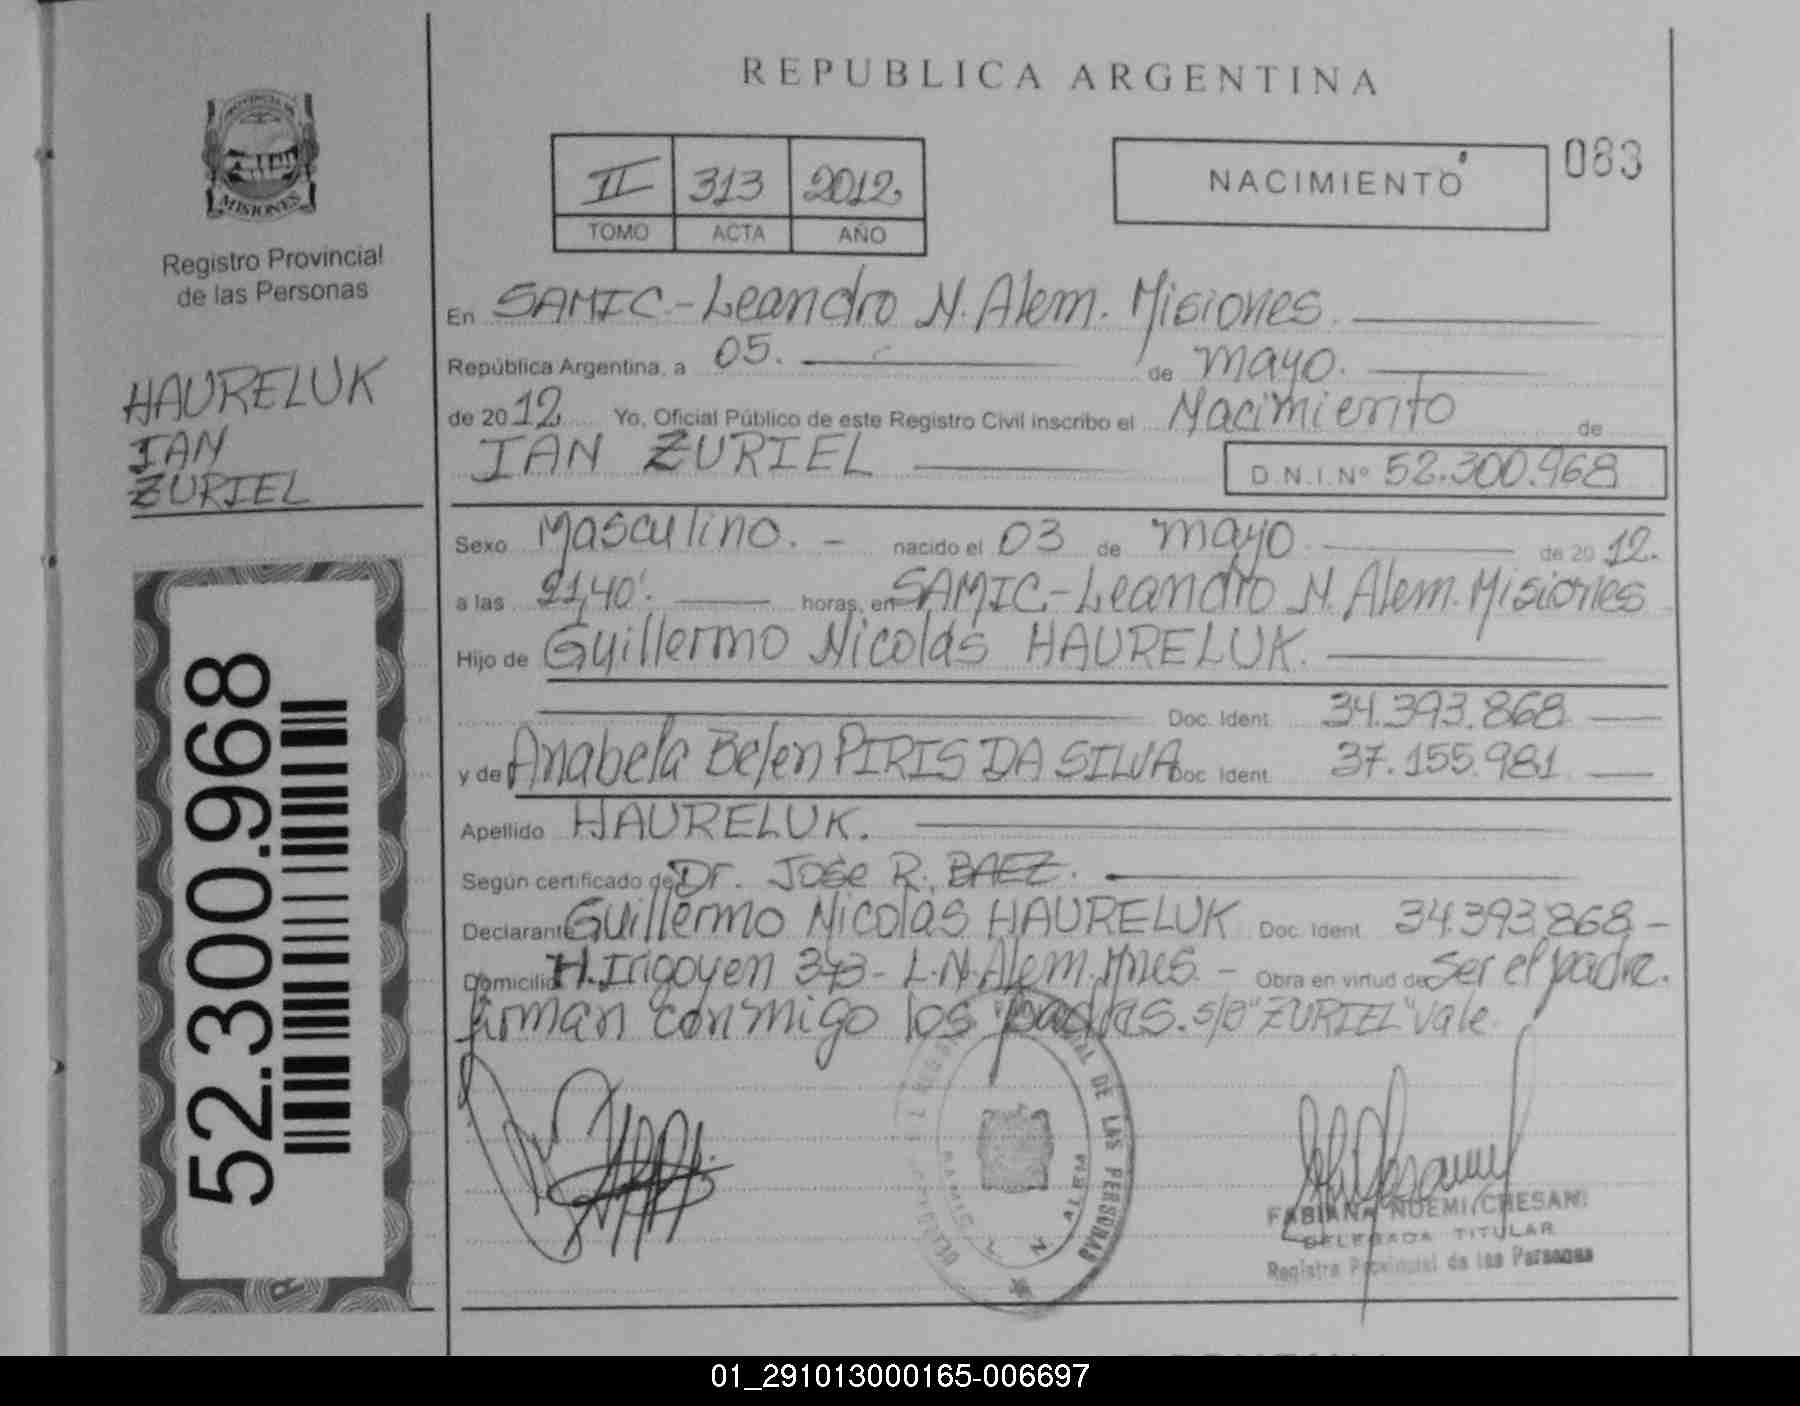 REPUBLICA ARGENTINA
PROVINCIA DE
MISIONES
Registro Provincial
de las Personas
II 313 2012
TOMO ACTA AÑO
NACIMIENTO
083
En SAMIC-Leandro N. Alem. Misiones.
República Argentina, a 05. de mayo.
de 2012 Yo, Oficial Público de este Registro Civil inscribo el Nacimiento de
IAN ZURIEL
D.N.I. Nº 52.300.968
HAURELUK
IAN
ZURIEL
Sexo Masculino. - nacido el 03 de mayo de 2012.
a las 21,40'. horas, en SAMIC-Leandro N. Alem. Misiones
Hijo de Guillermo Nicolás HAURELUK.
Doc. Ident. 34.393.868
y de Anabela Belen PIRIS DA SILVA Doc. Ident. 37.155.981
Apellido HAURELUK.
Según certificado de Dr. José R. BAEZ.
Declarante Guillermo Nicolás HAURELUK Doc. Ident. 34.393.868-
Domicilio H. Irigoyen 343- L.N.Alem. Mnes. - Obra en virtud de Ser el padre.
firman conmigo los padres. s/b "ZURIEL" Vale.
52.300.968
DE LAS PERSONAS
SAMIC L N ALEM
FABIANA NOEMI CHESANI
DELEGADA TITULAR
Registro Provincial de las Personas
01_291013000165-006697